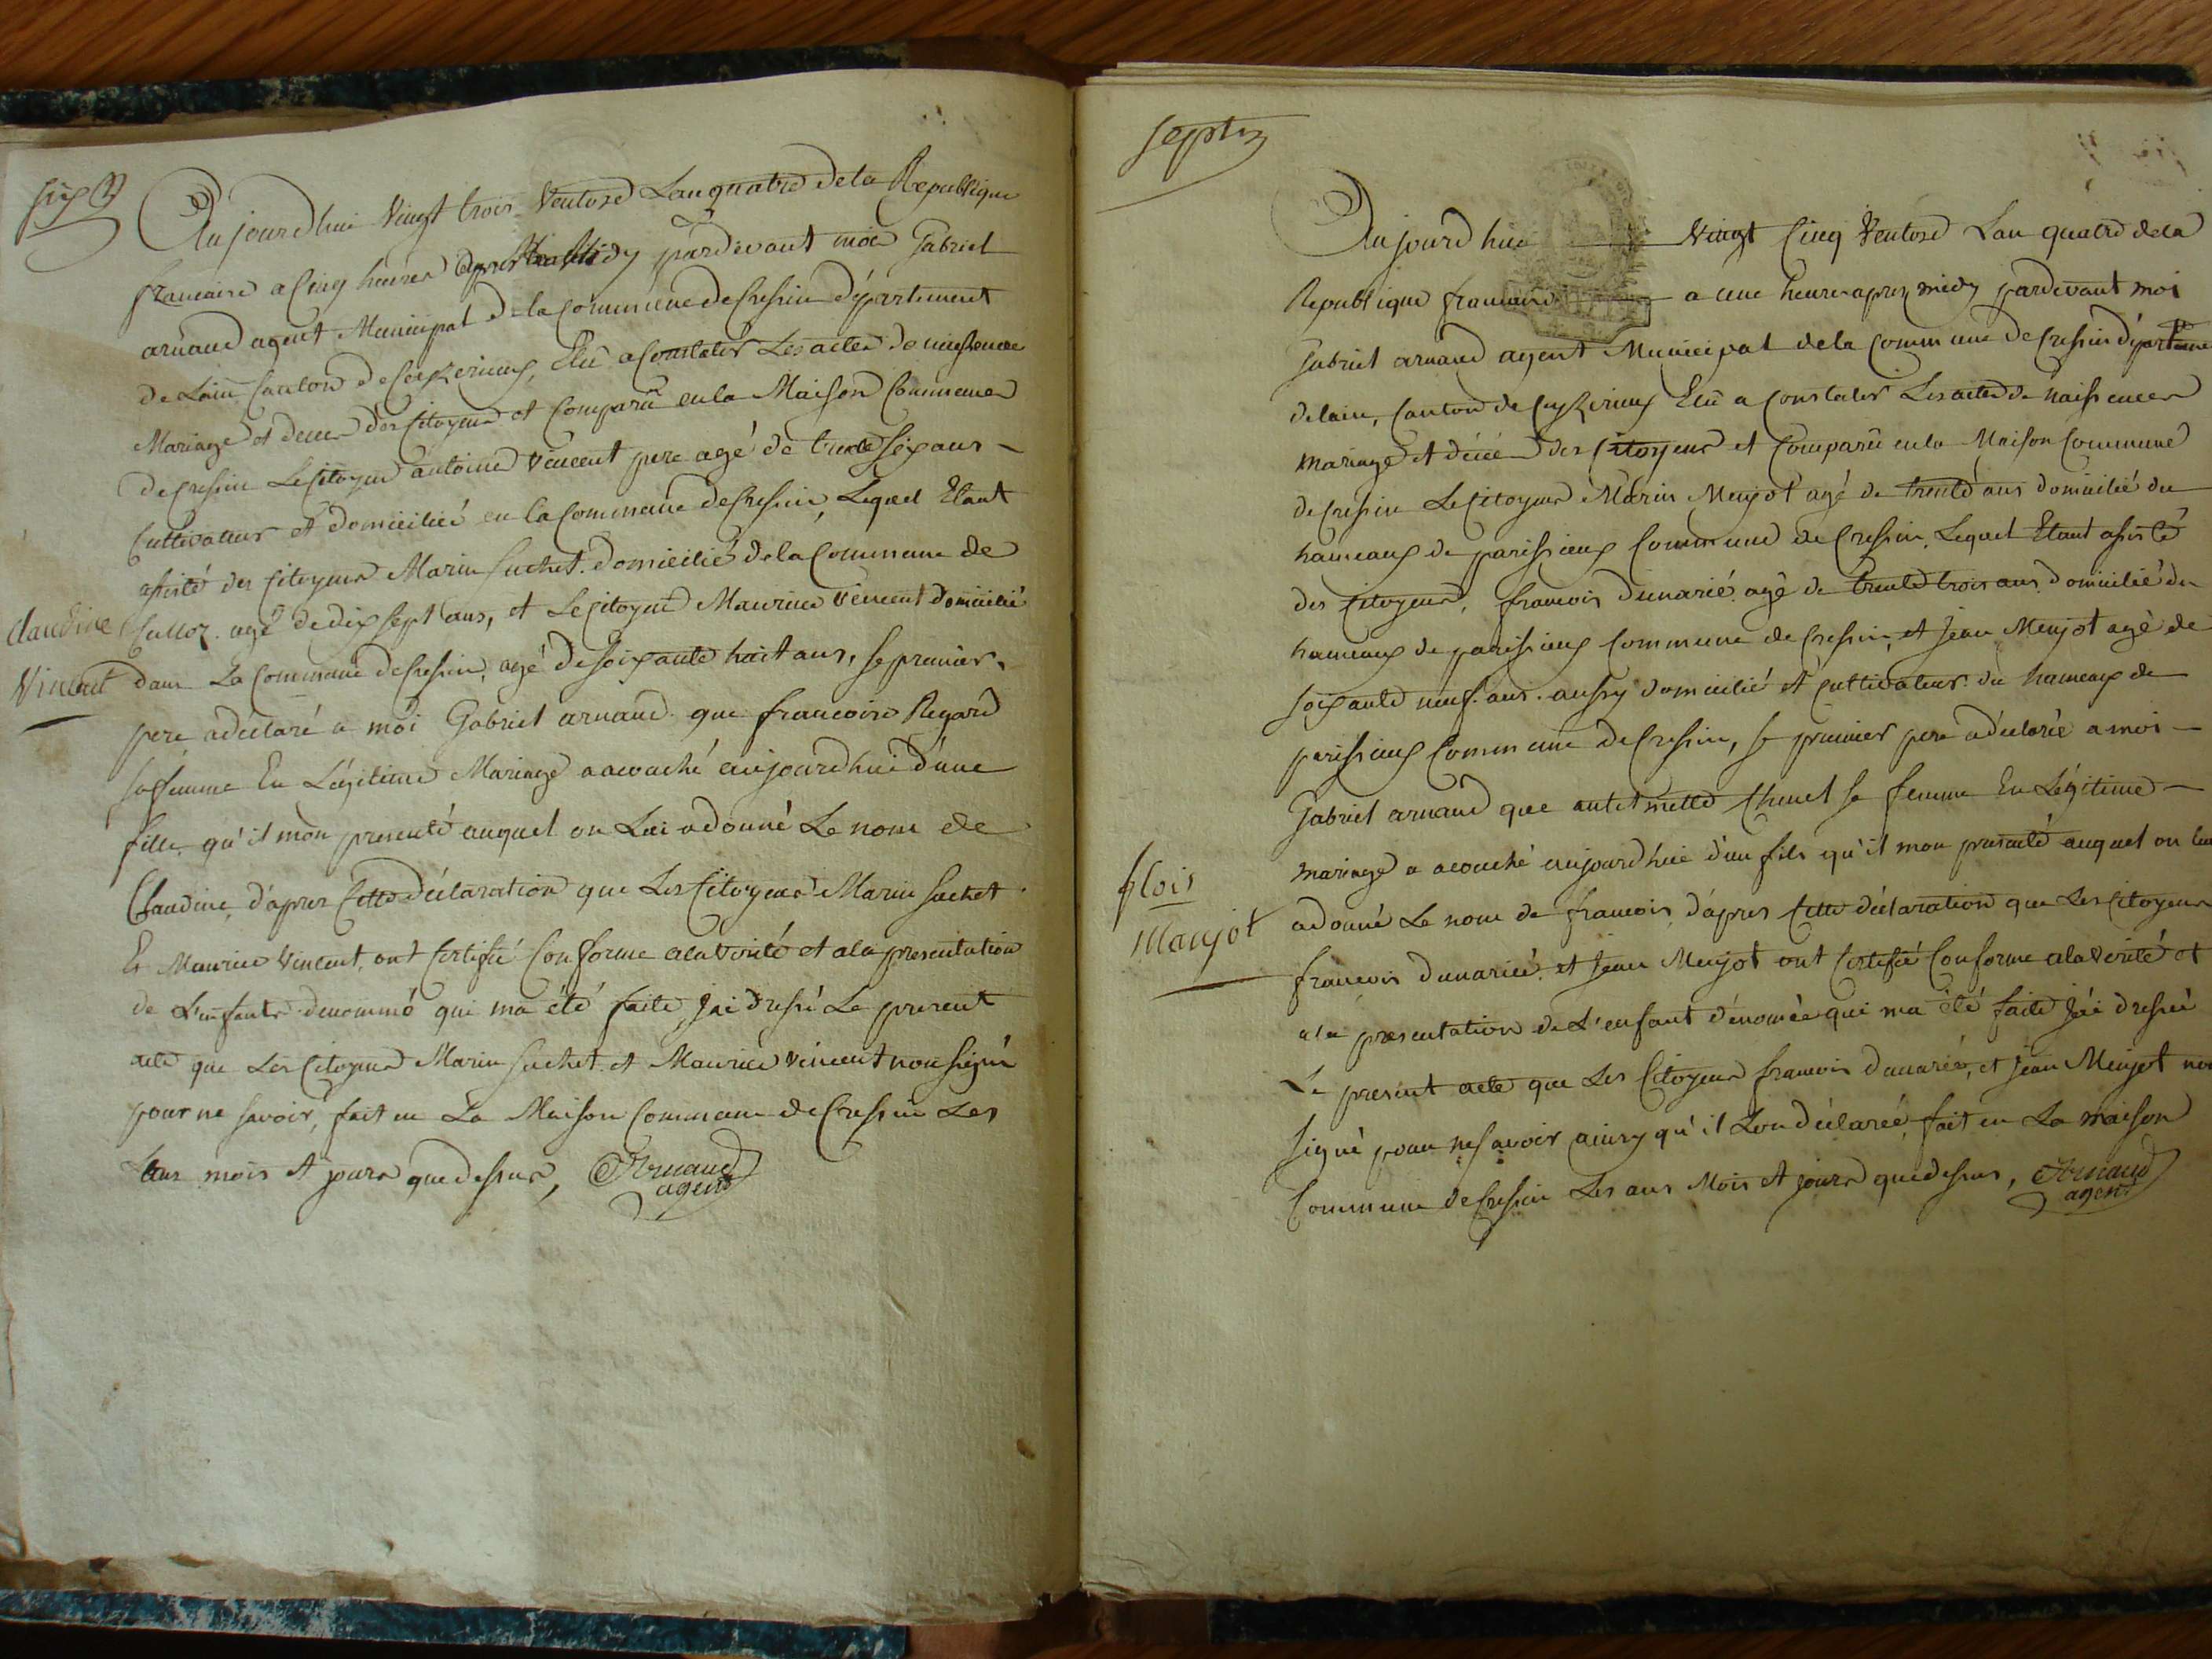 six
Aujourdhui Vingt trois Ventose Lan quatre de la Republique
francaise a Cinq heures apres Midy pardevant moi Gabriel
arnaud agent Municipal de la Commune de Cressin département
de Lain Canton de Ceyzerieux, Elu a Constater Les actes de naissance
Mariage et deces des Citoyens et Comparû en la Maison Commune
de Cressin Le Citoyen antoine Vincent pere agé de trente six ans –
Cultivateur et domicilié en la Commune de Cressin, Lequel Etant
assisté des Citoyens Marin Suchet domicilié de la Commune de
Culloz agé de dix sept ans, et Le Citoyen Maurice Vincent domicilié
dans La Commune de Cressin, agé de soixante huit ans, Le premier
pere a déclaré a moi Gabriel arnaud que francoise Regard
sa femme En Légitime Mariage a acouché aujourdhui d'une
fille qu'il mon presenté auquel on Lui a donné Le nom de
Claudine, d'apres Cette déclaration que Les Citoyens Marin Suchet
Et Maurice Vincent, ont Certifié Conforme a la vérité et a la presentation
de L'enfant denommé qui ma été faite, Jai dressé Le present
acte que Les Citoyens Marin Suchet et Maurice Vincent non signé
pour ne savoir, fait en La Maison Commune de Cressin Les
ans mois et jours que dessus, Arnaud
agent
Claudine
Vincent
sept
Aujourdhui Vingt Cinq Ventose Lan quatre de la
Republique francaise a une heure apres midy pardevant moi
Gabriel arnaud agent Municipal de la Commune de Cressin départeme
de lain, Canton de Ceyzerieux Elu a Constater Les actes de naissances
mariage et décés des Citoyens et Comparû en la Maison Commune
de Cressin Le Citoyen Marin Meujot agé de trente ans domicilié du
hameaux de parissieux Commune de Cressin, Lequel Etant assisté
des Citoyens, francois dunarié agé de trente trois ans domicilié du
hameaux de parissieux Commune de Cressin, et Jean Meujot agé de
soixante neuf ans aussy domicilié et Cultivateur du hameaux de
parissieux Commune de Cressin, Le premier pere a déclaré a moi –
Gabriel arnaud que sa femme En Légitime –
mariage a acouché aujourdhui d'un fils qu'il mon presenté auquel on lui
a donné Le nom de francois, d'apres Cette déclaration que Les Citoyens
francois dunarié et Jean Meujot ont Certifié Conforme a la vérité et
a la presentation de L'enfant dénomée qui ma été faite Jai dressé
Le present acte que Les Citoyens francois dunarié, et Jean Meujot non
signé pour ne savoir ainsy qu'il Lon déclareé, fait en La maison
Commune de Cressin Les ans Mois et jours que dessus, Arnaud
agent
flois
Maujot